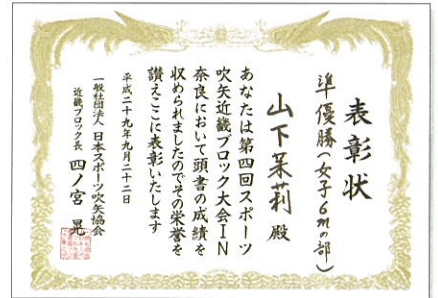 表彰状
準優勝(女子6mの部)
山下茉莉 殿
あなたは第四回スポーツ
吹矢近畿ブロック大会IN
奈良において頭書の成績を
収められましたのでその栄誉を
讃えここに表彰いたします
平成二十九年九月二十二日
一般社団法人 日本スポーツ吹矢協会
近畿ブロック長 四ノ宮 晃